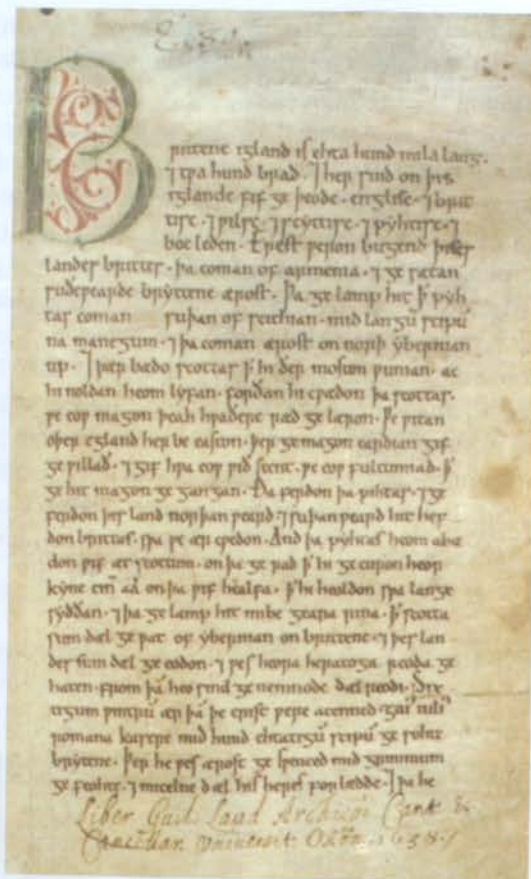 Brittene igland is ehta hund mila lang.
⁊ tƿa hund brad. ⁊ her sind on þis
iglande fif ge þeode. englisc. ⁊ brit
tisc. ⁊ ƿilsc. ⁊ scyttisc. ⁊ pyhtisc. ⁊
boc leden. Erest ƿeron bugend þises
landes brittes. þa coman of armenia. ⁊ ge sætan
suðeƿearde bryttene ærost. Þa ge lamp hit ꝥ pyh
tas coman suþan of scithian. mid langū scipū
na manegum. ⁊ þa coman ærost on norþ ybernian
up. ⁊ þær bædo scottas ꝥ hi ðer moston ƿunian. ac
hi noldan heom lyfan. forðan hi cƿædon þa scottas.
ƿe eoƿ magon þeah hƿaðere ræd ge læron. Ƿe ƿitan
oþer egland her be easton. þer ge magon eardian gif
ge ƿillað. ⁊ gif hƿa eoƿ ƿið stent. ƿe eoƿ fultumiað. ꝥ
ge hit magon ge gangan. Ða ferdon þa pihtas. ⁊ ge
ferdon þis land norþan ƿeard. ⁊ suþan ƿeard hit hef
don brittas. sƿa ƿe ær cƿedon. And þa pyhtas heom abæ
don ƿif æt scottum. on þa ge rad ꝥ hi ge curon heora
kyne cinn aa on þa ƿif healfa. ꝥ hi heoldon sƿa lange
syððan. ⁊ þa ge lamp hit imbe geara rina. ꝥ scotta
sum dæl ge ƿat of ybernian on brittene. ⁊ þes lan
des sum dæl ge eodon. ⁊ ƿes heora heratoga reoda ge
haten. from þā heo sind ge nemnode dæl reodi. Six
tigum ƿintrū ær þā þe crist ƿere acenned. gaiˀ iuliˀ
romana kasere mid hund ehtatigū scipū ge sohte
brytene. Þer he ƿes ærost ge sƿenced mid grimmum
ge feohte. ⁊ micelne dæl his heres forlædde. ⁊ þa he
Liber Guil: Laud Archiepi Cant &
Cancellar. Universit Oxon. 1638.